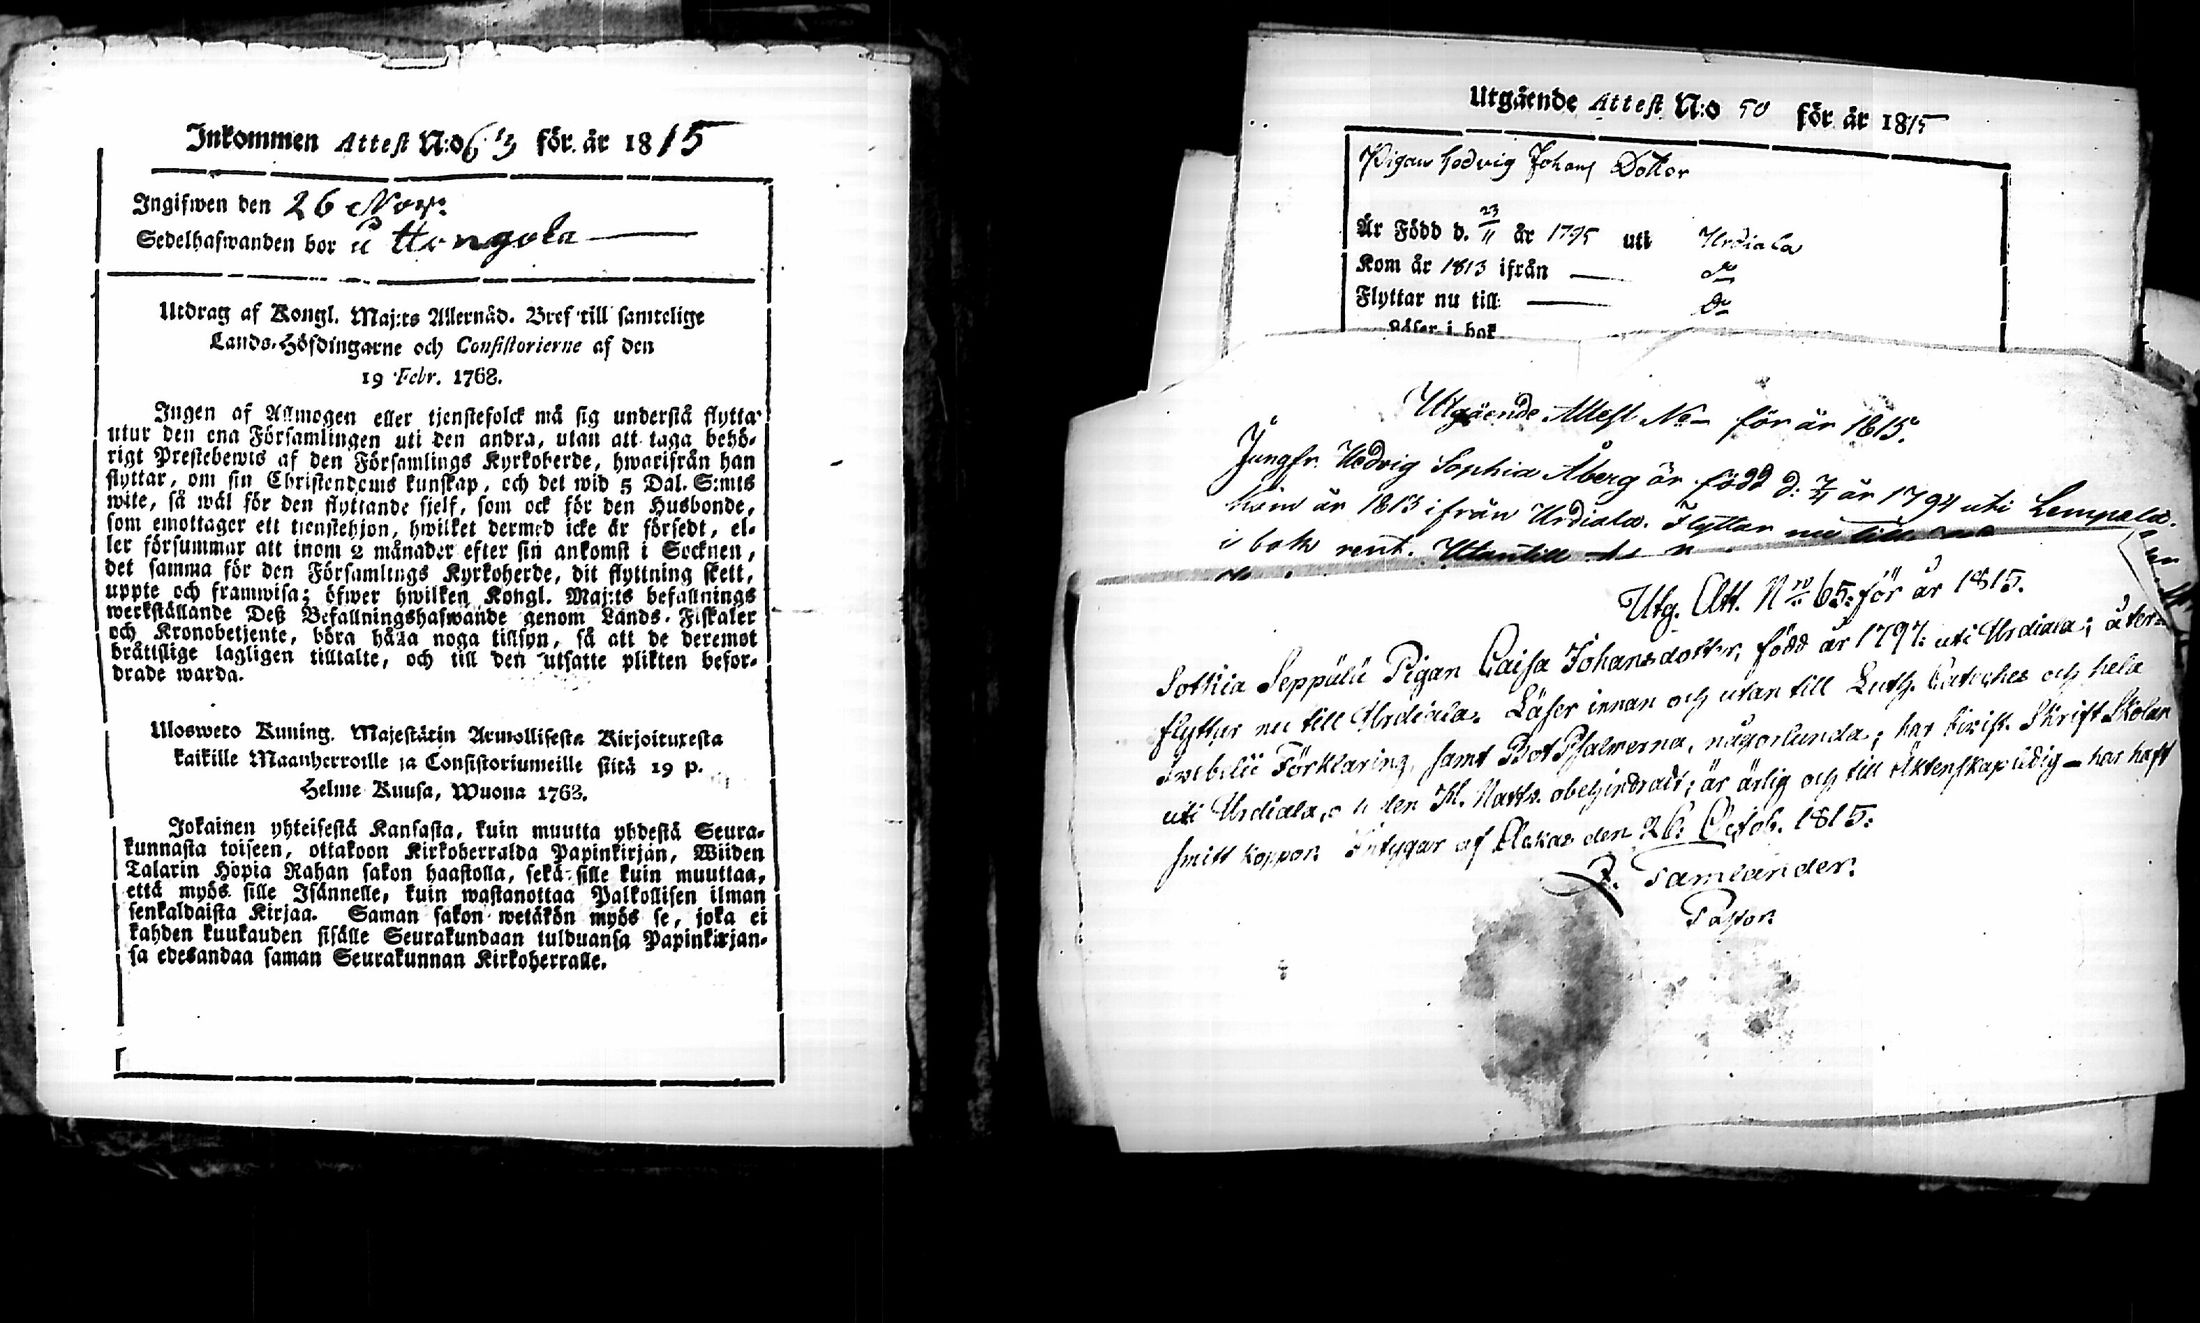 Inkommen Attest N:o 6 13 för år 1815
Ingifwen den 26 Nov:
Sedelhafwanden bor å Hongola
Utdrag af Kongl. Maj:ts Allernåd. Bref till samtelige
Lands-Höfdingarne och Consistorierne af den
19 Febr. 1768.
Ingen af Allmogen eller tjenstefolck må sig understå flytta
utur den ena Församlingen uti den andra, utan att taga behö-
rigt Prestebewis af den Församlings Kyrkoherde, hwarifrån han
flyttar, om sin Christendoms kunskap, och det wid 5 Dal. S:mts
wite, så wäl för den flyttande sjelf, som ock för den Husbonde,
som emottager ett tienstehjon, hwilket dermed icke är försedt, el-
ler försummar att inom 2 månader efter sin ankomst i Socknen,
det samma för den Församlings Kyrkoherde, dit flyttning skett,
uppte och framwisa; öfwer hwilken Kongl. Maj:ts befallnings
werkställande Deß Befallningshafwande genom Lands-Fiskaler
och Kronobetjente, böra hålla noga tillsyn, så att de deremot
bråttslige lagligen tilltalte, och till den utsatte plikten befor-
drade warda.
Ulosweto Kuning. Majestätin Armollisesta Kirjoituxesta
kaikille Maanherroille ja Consistoriumeille siitä 19 p.
Helme Kuusa, Wuona 1763.
Jokainen yhteisestä Kansasta, kuin muutta yhdestä Seura-
kunnasta toiseen, ottakoon Kirkoherralda Papinkirjan, Wiiden
Talarin Hopia Rahan sakon haastolla, sekä sille kuin muuttaa,
että myös sille Isännelle, kuin wastanottaa Palkollisen ilman
senkaldaista Kirjaa. Saman sakon wetäkön myös se, joka ei
kahden kuukauden sisälle Seurakundaan tulduansa Papinkirjan-
sa edesandaa saman Seurakunnan Kirkoherralle.
Utgående Attest N:o 50 för år 1815
Pigan Hedvig Johans Dotter
Är Född d. 23/11 år 1795 uti Urdiala
Kom år 1813 ifrån do
Flyttar nu till do
Läser i bok
Utgående Attest No för år 1815.
Jungfr. Hedvig Sophia Åberg är född d: 7/4 år 1794 uti Lempela.
kom år 1813 ifrån Urdiala. Flyttar nu till
i bok rent. Utantill
Utg. Att. Nro 65: för år 1815.
Sothia Seppälä Pigan Caisa Johansdotter, född år 1797: uti Urdiala; åter-
flyttar nu till Urdiala. Läser innan och utan till Luth. Cateches och hela
Swebelii Förklaring, samt BotPsalmerna, någorlunda; har bivist. Skrift Skolan
uti Urdiala, den H. Nattv. obehindradt; är ärlig och till Äktenskap ledig – har haft
smitt koppor. Intygar af Akkas den 26: Octob. 1815:
Tamlander.
Pastor.